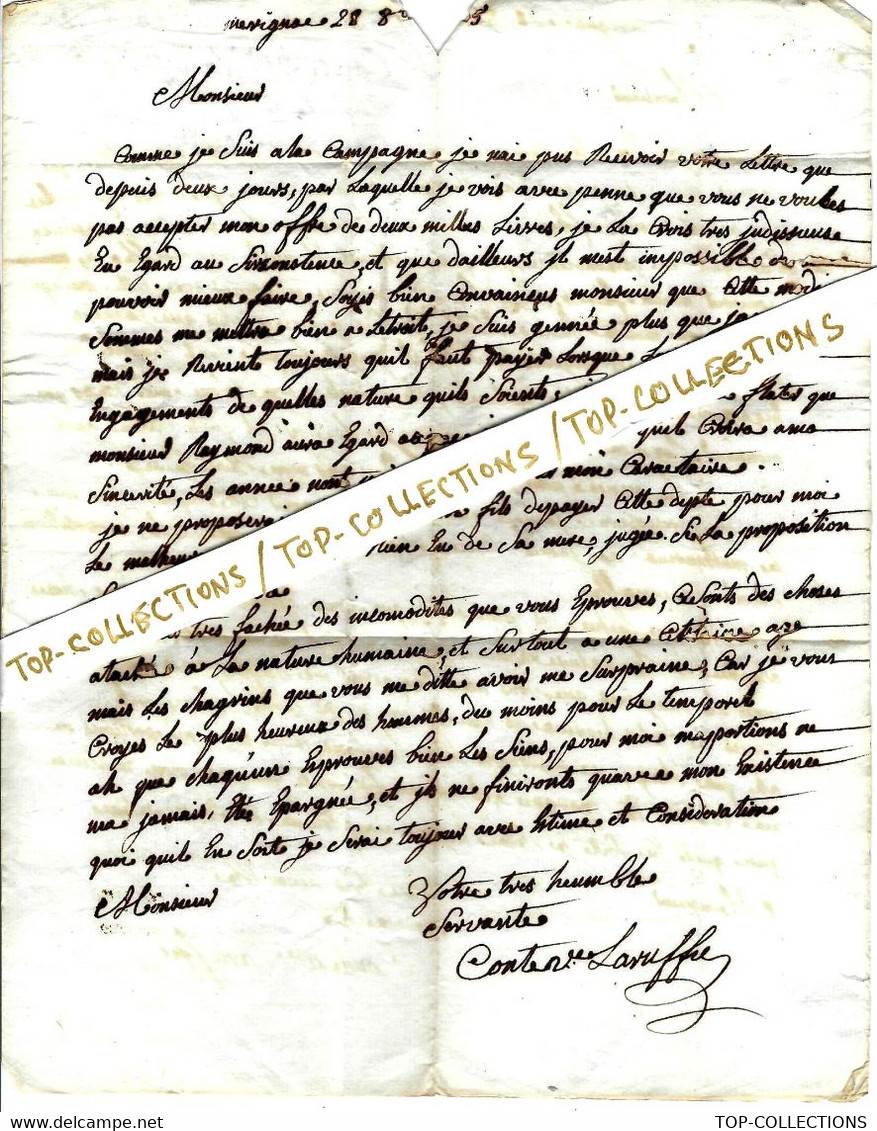 merignac 28 8
Monsieur
Comme je suis a la Campagne je nai pus Recevoir votre Lettre que
depuis deux jours, par Laquelle je vois avec penne que vous ne voules
pas accepter mon offre de deux milles Livres, je La Crois tres judissieuse
En Egard au Sirconstence, et que dailleurs jl mest impossible de
pouvoir mieux faire, Soyés bien Convainçus monsieur que Cette modi
Sommes me mettra bien a Letroit, je Suis gennée plus que ja
mais je Revient toujours quil faut payer Lorsque L
Engagements de quelles nature quils Soients, flater que
monsieur Raymond aura Egard a quil Croira ama
Sincerité, Les annee nont mon Caractaire.
je ne proposerai fils depayer Cette depte pour moi
Le malheur rien Eu de Sa mere, jugée. Si La proposition
tres fachée des incomodites que vous Eprouves, Ce Sonts des choses
ataché a La nature humaine, et Surtout a une Certaine age
mais Les chagrins que vous me ditte avoir me Surpraine, Car je vous
Croyes Le plus heureux des hommes, du moins pour Le temporel
ah que chaqu'un Eprouves bien Les Siens, pour moi maportions ne
ma jamais Eté Epargnée, et jls ne finironts quavec mon Existence
quoi quil En Soit je Serai toujour avec Estime et Consideration
Monsieur
Votre tres heumble
Servante
Conte vve Laruffie
TOP-COLLECTIONS / TOP-COLLECTIONS / TOP-COLLECTIONS
TOP-COLLECTIONS